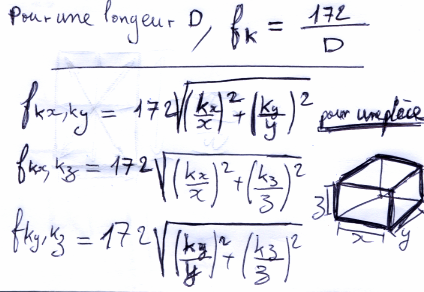 Pour une longeur D, fk = 172 / D
fkx,ky = 172 √((kx/x)² + (ky/y)²) pour une pièce
fkx,kz = 172 √((kx/x)² + (kz/z)²)
z x y
fky,kz = 172 √((ky/y)² + (kz/z)²)